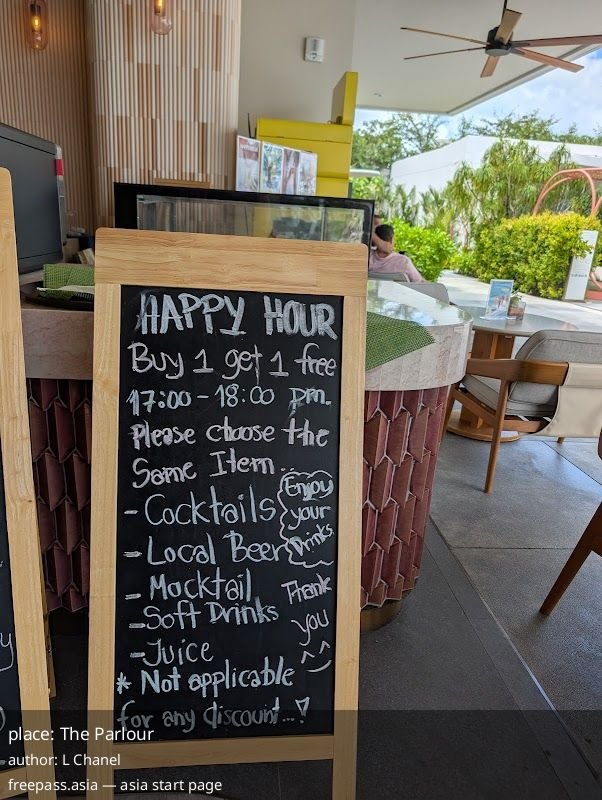 HAPPY HOUR
Buy 1 get 1 free
17:00 - 18:00 pm.
Please choose the
Same Item...
- Cocktails
- Local Beer
- Mocktail
- Soft Drinks
- Juice
* Not applicable
for any discount...!
Enjoy
your
Drinks.
Thank
you
^‿^
place: The Parlour
author: L Chanel
freepass.asia — asia start page